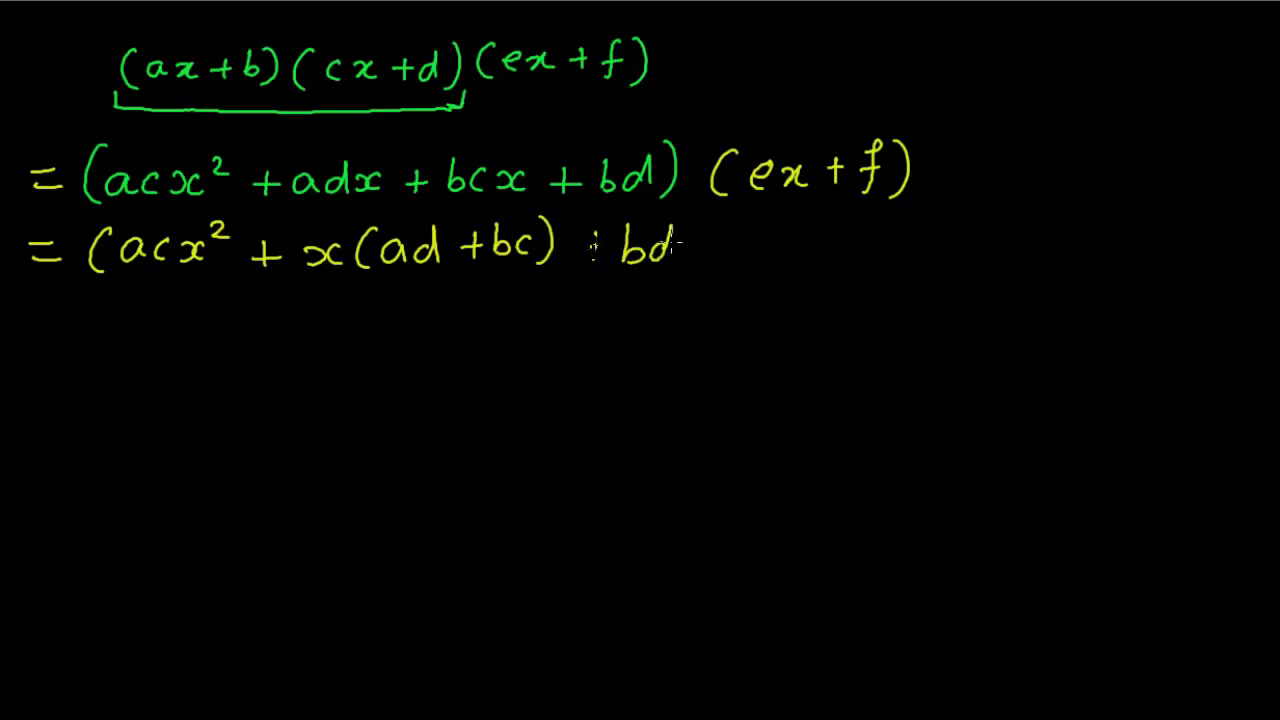 (ax+b)(cx+d)(ex+f)
=(acx² +adx + bcx + bd) (ex+f)
= (acx² + x(ad +bc) + bd